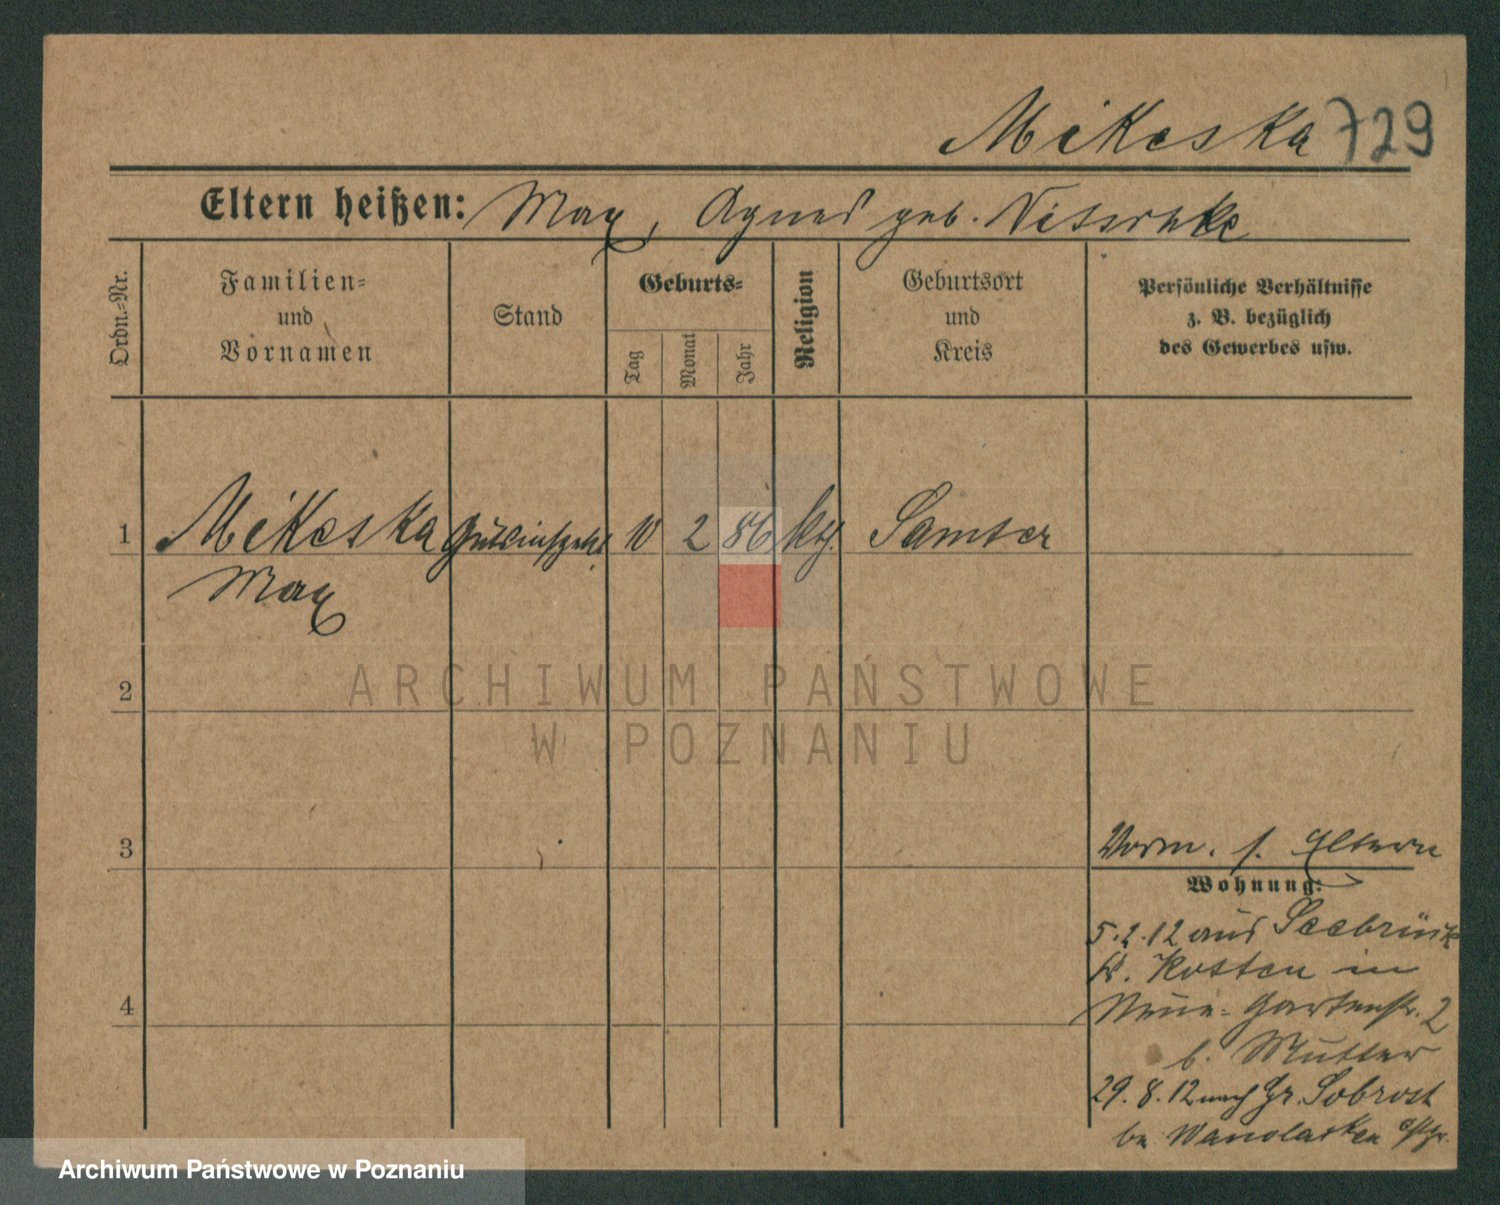 Mikeska 729
Eltern heißen: Max, Agnes geb. Nitschke
Ordn.-Nr.
Familien-
und
Vornamen
Stand
Geburts-
Tag
Monat
Jahr
Religion
Geburtsort
und
Kreis
Persönliche Verhältnisse
z. B. bezüglich
des Gewerbes usw.
1 Mikeska 10 2 86 kth. Samter
Max
2
ARCHIWUM PAŃSTWOWE
W POZNANIU
3
Vorm. s. Eltern
Wohnung:
4
5.2.12 aus Seebrück
Kr. Kosten in
Neue-Gartenstr. 2
b. Mutter
29.8.12 nach Gr. Sobrost
Archiwum Państwowe w Poznaniu